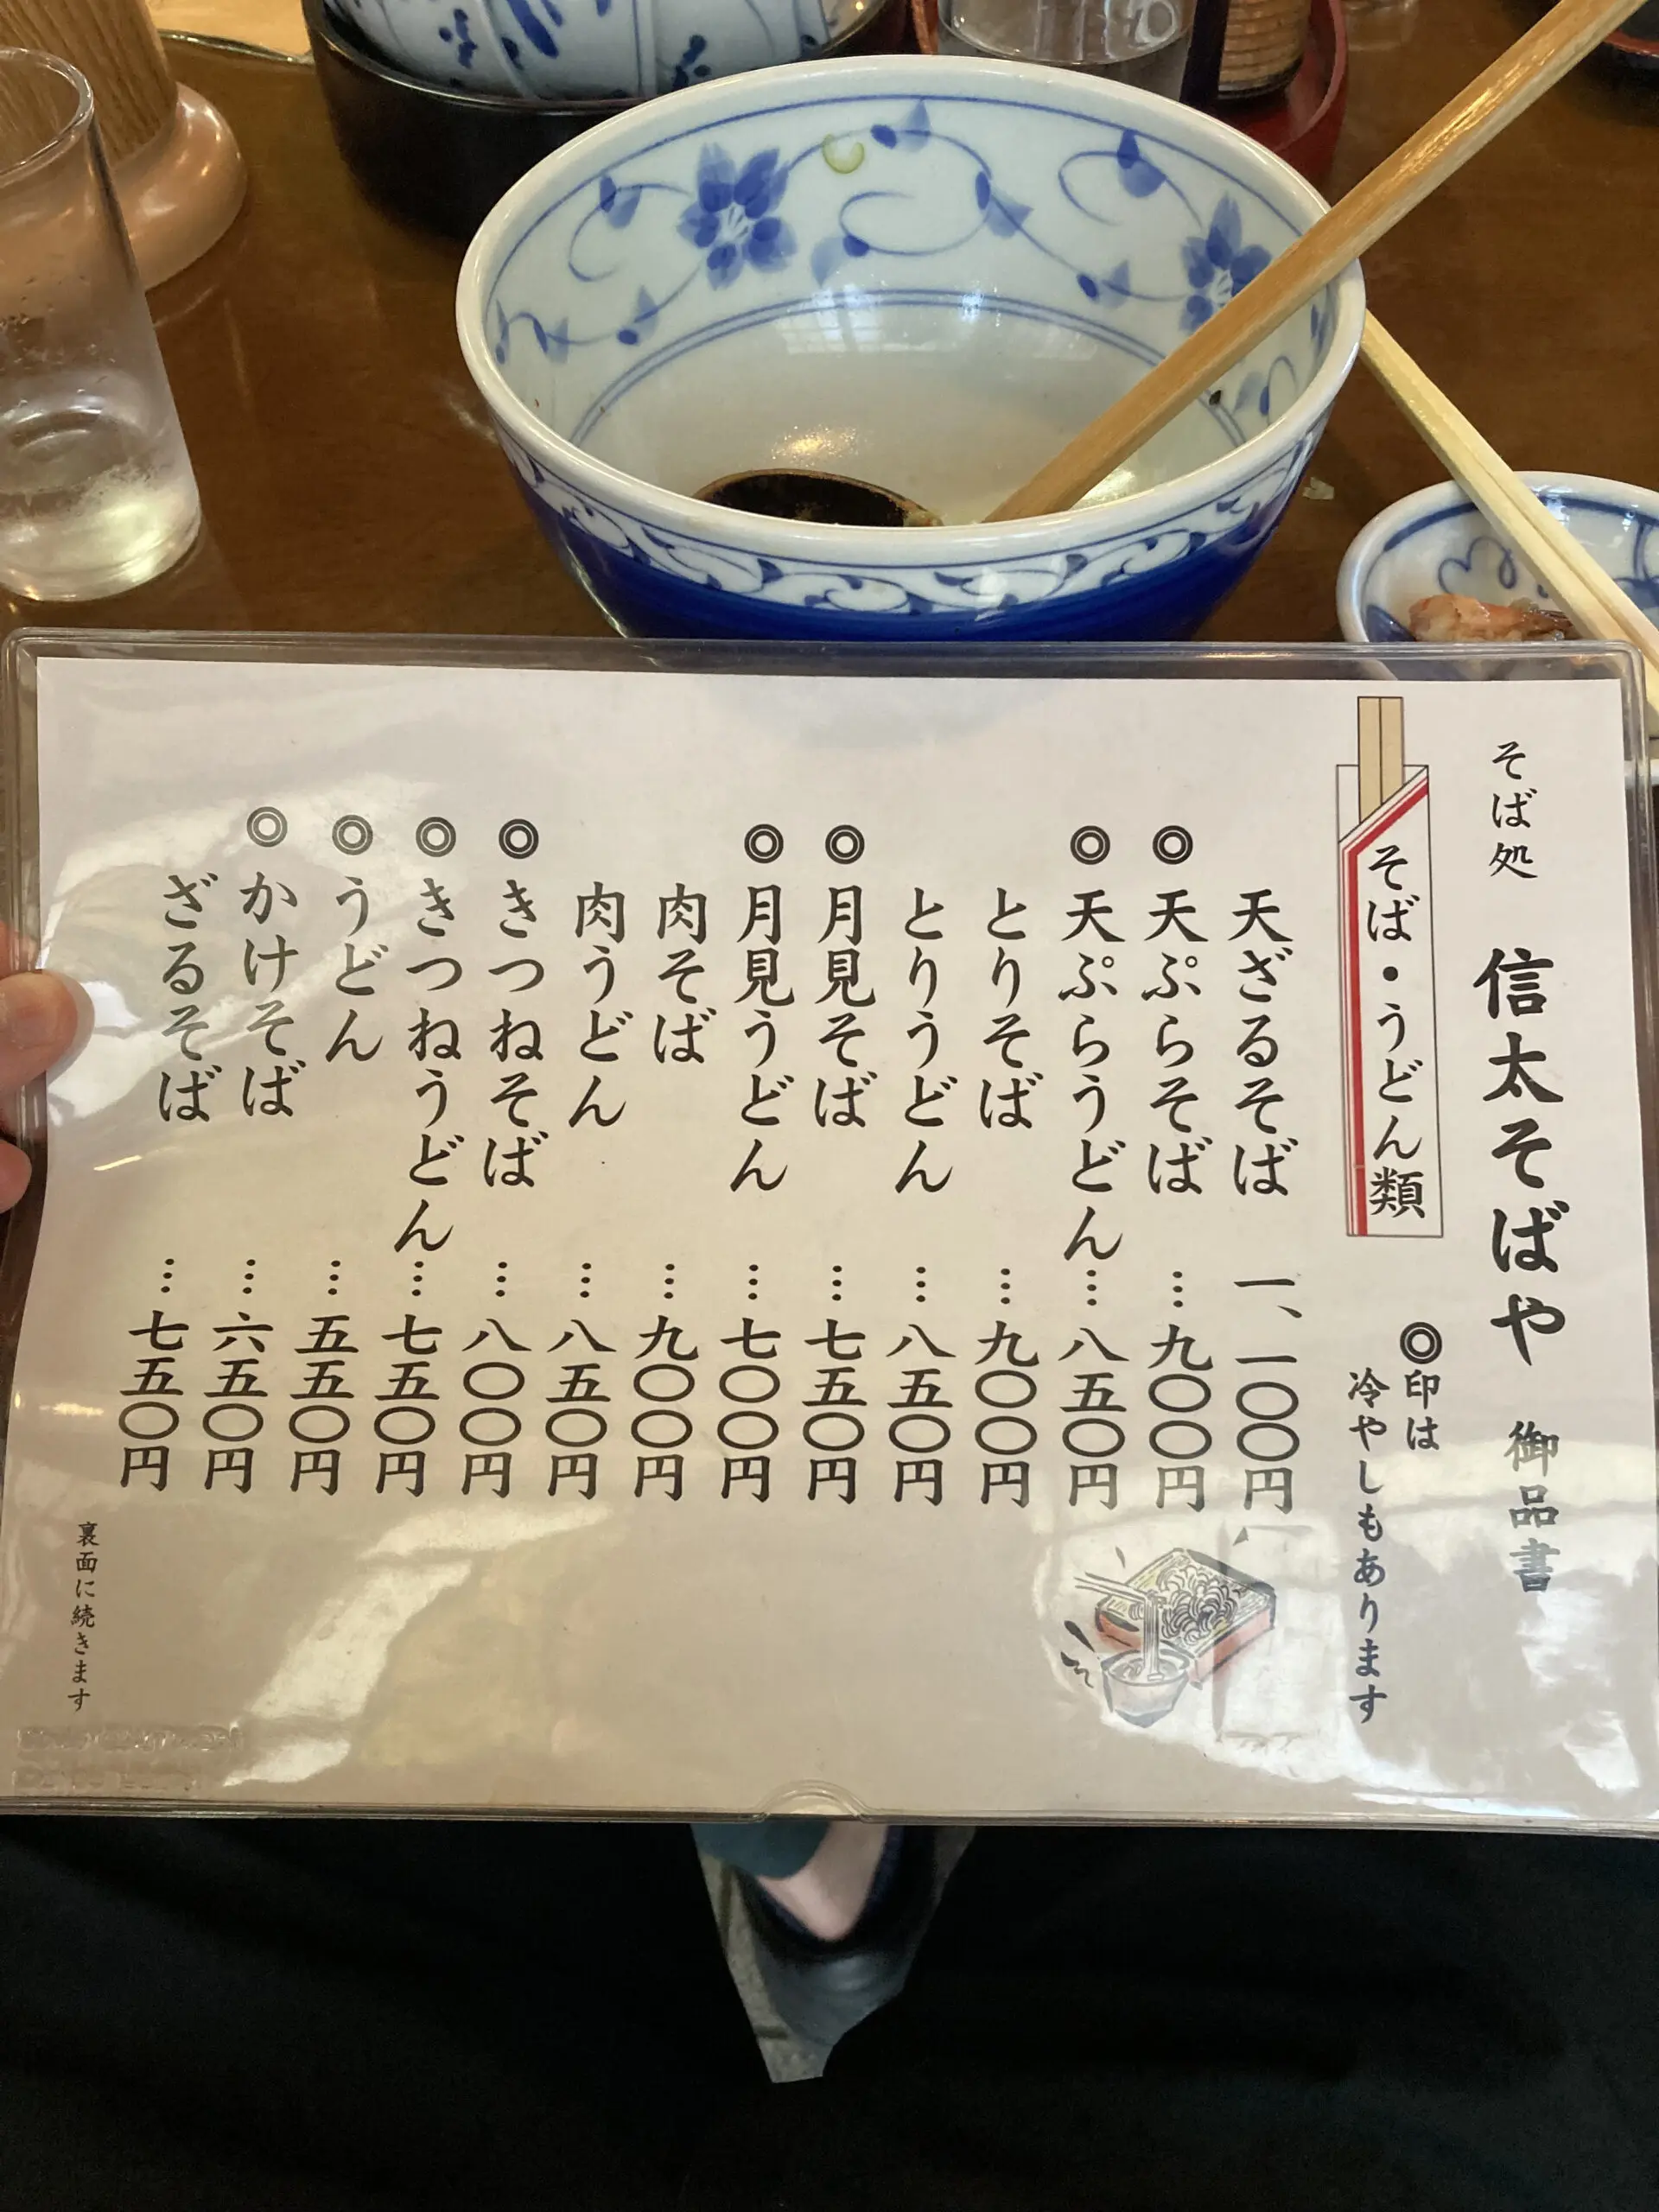 そば処 信太そばや 御品書
そば・うどん類
◎印は
冷やしもあります
天ざるそば 一、一〇〇円
◎天ぷらそば …九〇〇円
◎天ぷらうどん…八五〇円
とりそば …九〇〇円
とりうどん …八五〇円
◎月見そば …七五〇円
◎月見うどん …七〇〇円
肉そば …九〇〇円
肉うどん …八五〇円
◎きつねそば …八〇〇円
◎きつねうどん…七五〇円
◎うどん …五五〇円
◎かけそば …六五〇円
ざるそば …七五〇円
裏面に続きます